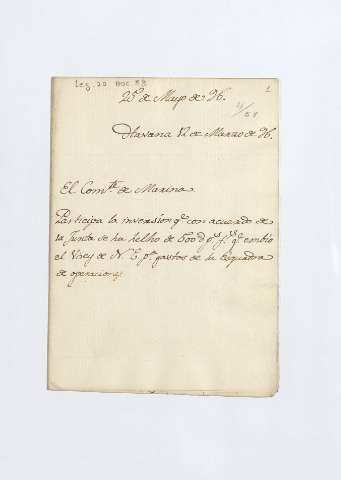 Leg. 20 Doc 58
1
25 de Mayo de 96.
1/58
Havana 12 de Marzo de 96.
El Com.te de Marina
Participa la inversion q.e con acuerdo de
la Junta se ha hecho de 600 d p.s f.s q.e embió
el Virey de N. E. p.a gastos de la Esquadra
de operaciones